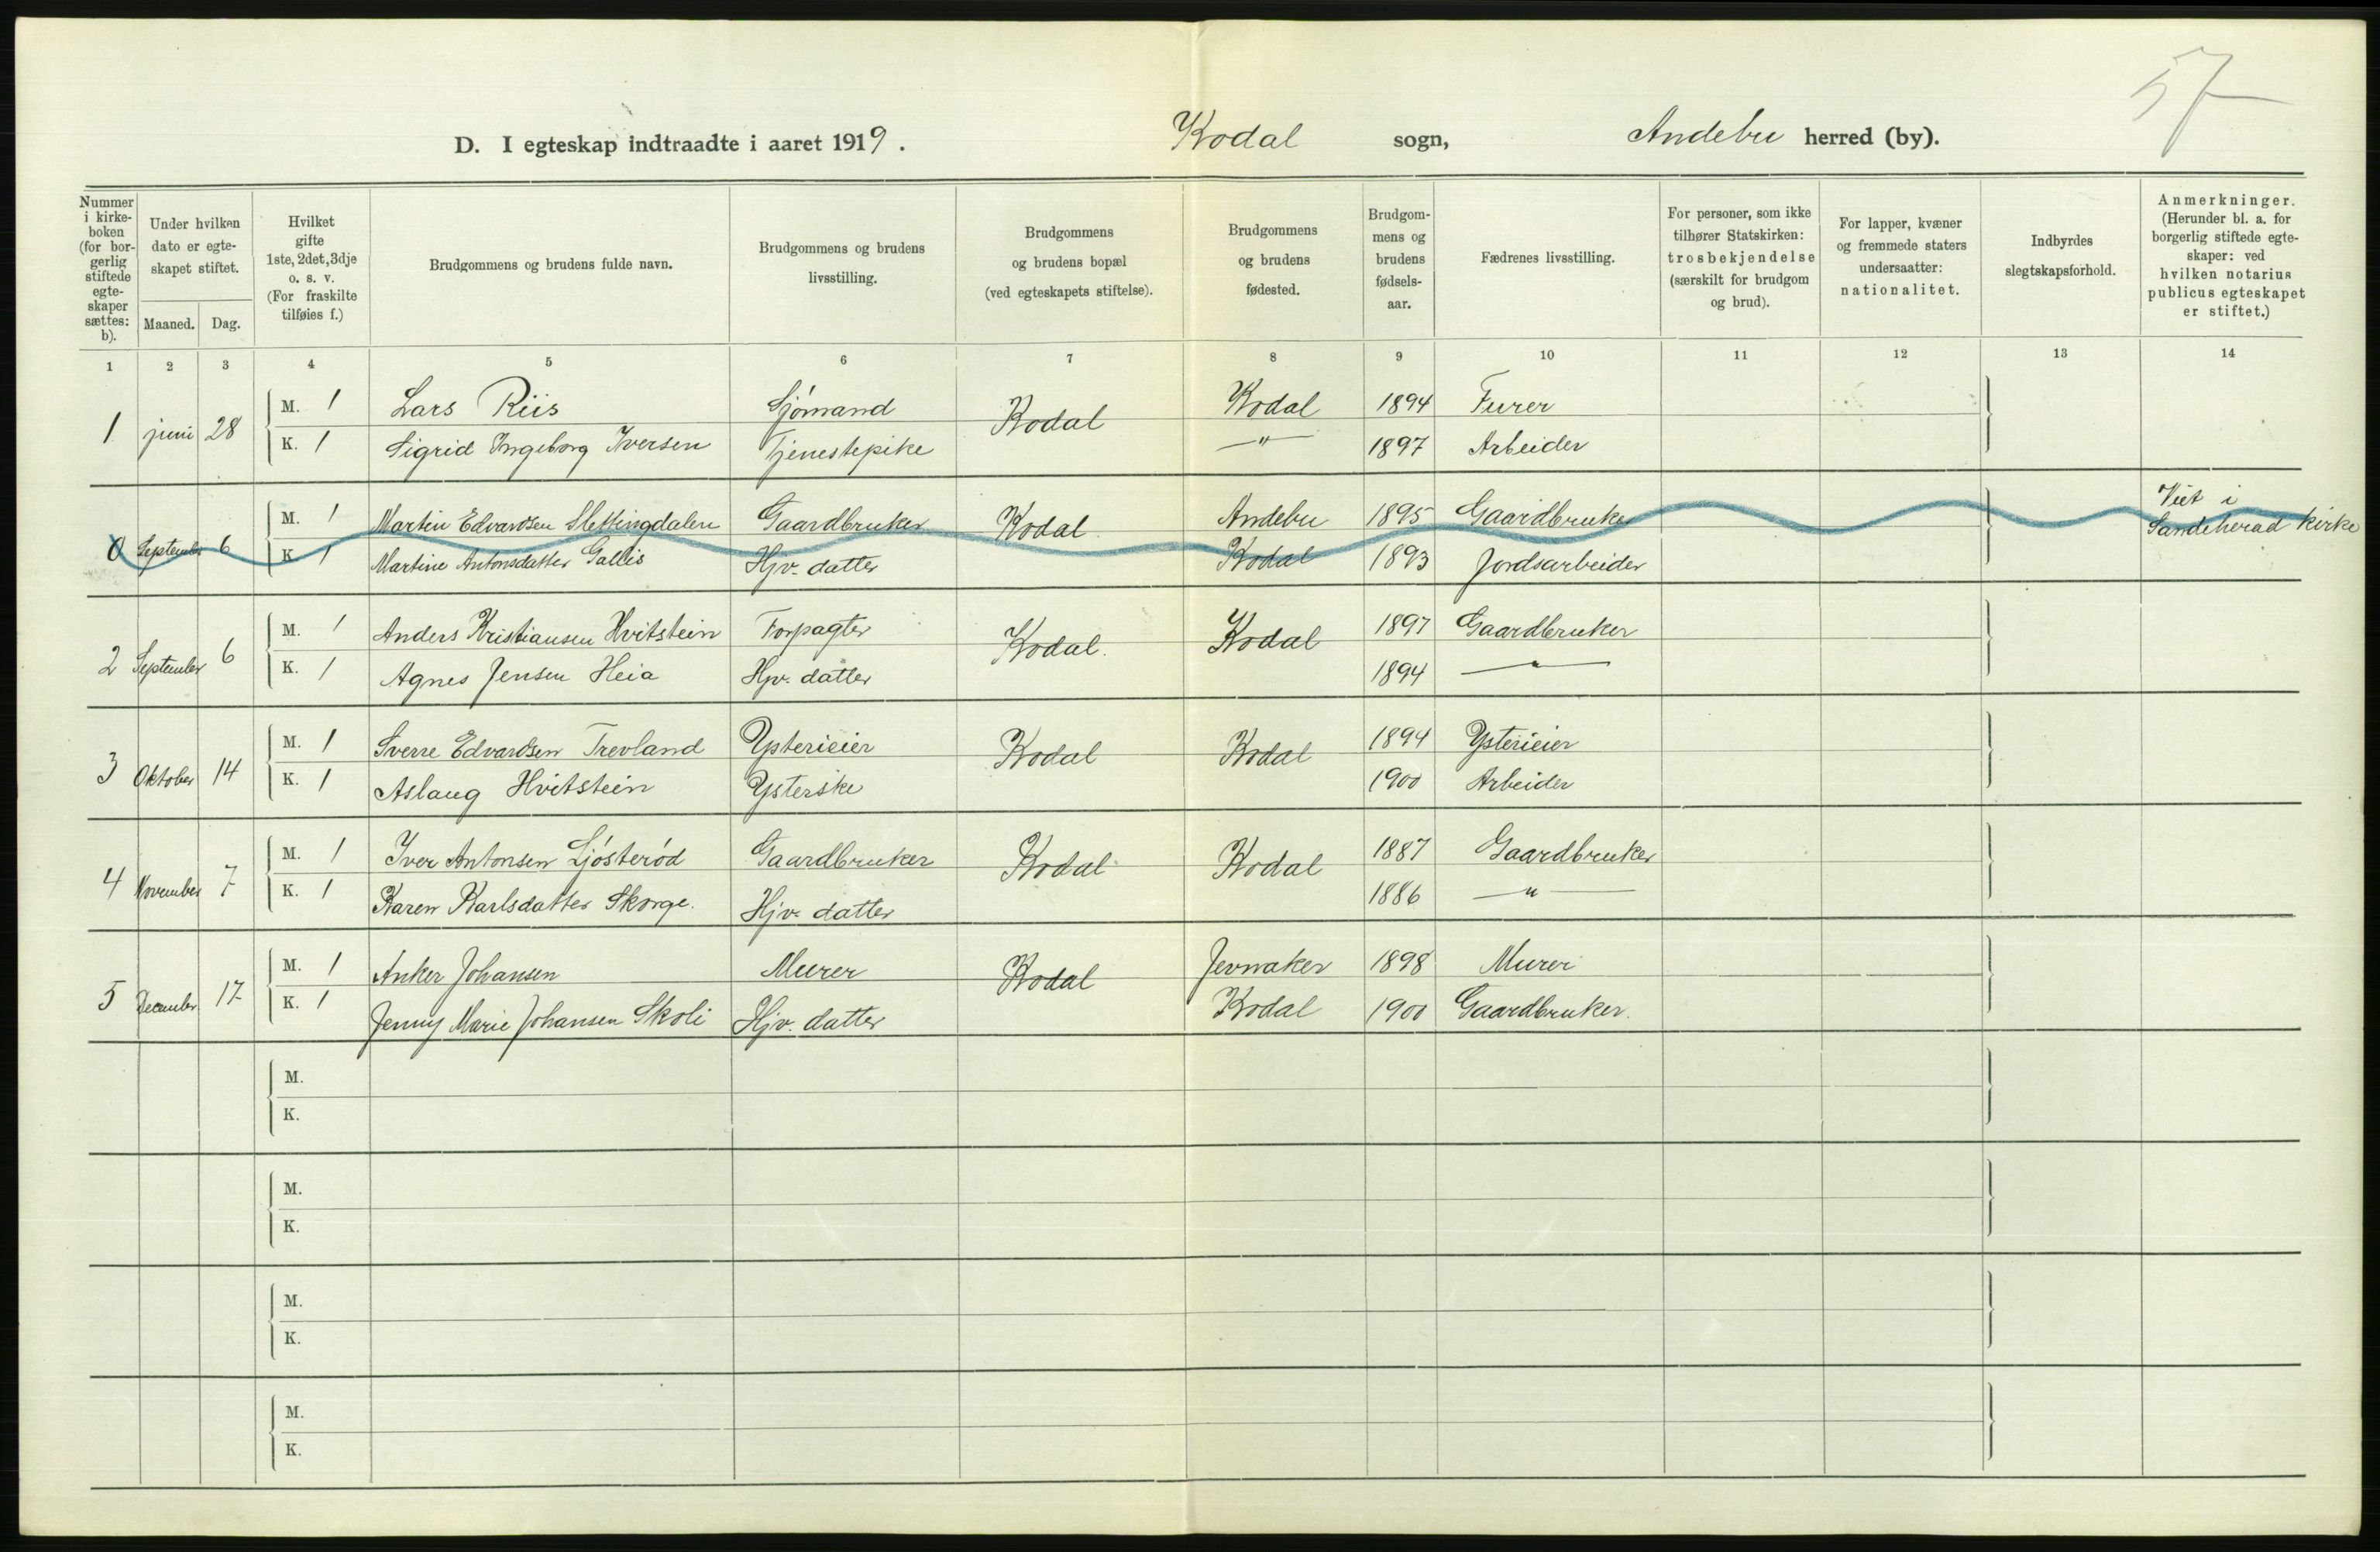 57
D. I egteskap indtraadte i aaret 1919. Kodal sogn, Andebu herred (by).
Nummer i kirke-boken (for bor-gerlig stiftede egte-skaper sættes: b).
Under hvilken dato er egte-skapet stiftet.
Maaned. Dag.
Hvilket gifte 1ste, 2det, 3dje o. s. v. (For fraskilte tilføies f.)
Brudgommens og brudens fulde navn.
Brudgommens og brudens livsstilling.
Brudgommens og brudens bopæl (ved egteskapets stiftelse).
Brudgommens og brudens fødested.
Brudgom-mens og brudens fødsels-aar.
Fædrenes livsstilling.
For personer, som ikke tilhører Statskirken: trosbekjendelse (særskilt for brudgom og brud).
For lapper, kvæner og fremmede staters undersaatter: nationalitet.
Indbyrdes slegtskapsforhold.
Anmerkninger. (Herunder bl. a. for borgerlig stiftede egte-skaper: ved hvilken notarius publicus egteskapet er stiftet.)
1 2 3 4 5 6 7 8 9 10 11 12 13 14
1 juni 28 M. 1 Lars Riis Sjómand Kodal Kodal 1894 Furer
K. 1 Sigrid Ingeborg Iversen Tjenestepike — " — 1897 Arbeider
0 September 6 M. 1 Martin Edvardsen Slettingdalen Gaardbruker Kodal. Andebu 1895 Gaardbruker Viet i Sandeherad Kirke
K. 1 Martine Antonsdatter Gallis Hjv. datter Kodal 1893 Jordsarbeider
2 September 6 M. 1 Anders Kristiansen Hvitstein Forpagter Kodal. Kodal 1897 Gaardbruker
K. 1 Agnes Jensen Heia Hjv. datter 1894 — " —
3 Oktober 14 M. 1 Sverre Edvardsen Trevland Ysterieier Kodal Kodal 1894 Ysterieier
K. 1 Aslaug Hvitstein Ysterske 1900 Arbeider
4 November 7 M. 1 Iver Antonsen Ljósterød Gaardbruker Kodal Kodal 1887 Gaardbruker
K. 1 Karen Karlsdatter Skorge. Hjv. datter 1886 — " —
5 December 17 M. 1 Anker Johansen Murer Kodal Jevnaker 1898 Murer
K. 1 Jenny Marie Johansen Skoli Hjv. datter Kodal 1900 Gaardbruker.
M.
K.
M.
K.
M.
K.
M.
K.